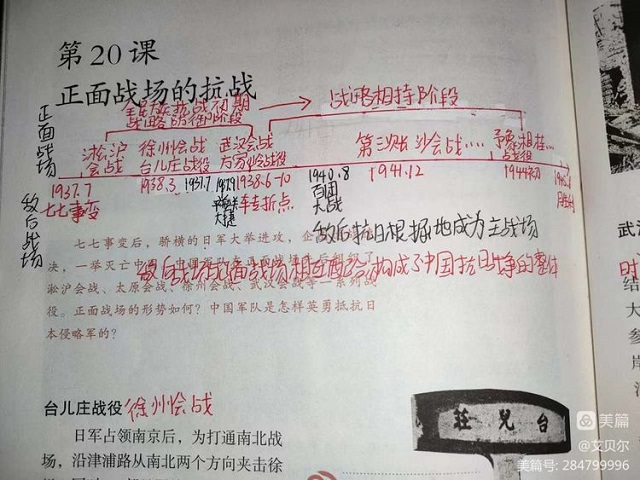 第20课
正面战场的抗战
正面战场
全民族抗战初期
战略防御阶段
战略相持阶段
淞沪会战
徐州会战
台儿庄战役
武汉会战
第三次长沙会战……
豫湘桂…
战役
1937.7
七七事变
1938.3
1938.6-10
转折点
1940.8
百团大战
1941.12
1944初
敌后战场
大捷
敌后抗日根据地成为主战场
七七事变后，骄横的日军大举进攻，企
决，一举灭亡中
敌后战场与正面战场相互配合，构成了中国抗日战争的整体
淞沪会战、太原会战、徐州会战、武汉会战等一系列战
役。正面战场的形势如何？中国军队是怎样英勇抵抗日
本侵略军的？
台儿庄战役 徐州会战
日军占领南京后，为打通南北战
场，沿津浦路从南北两个方向夹击徐
莊兒台
武
明
大
参
岸
美篇
@艾贝尔
美篇号: 284799996